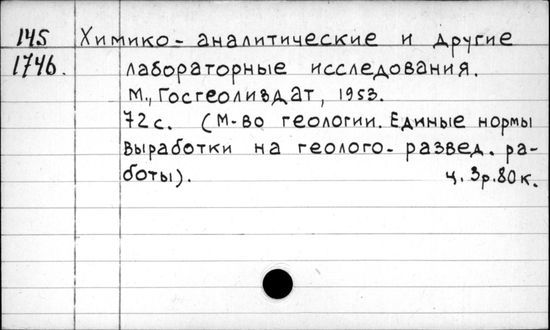 145 Химико-аналитические и другие
1746. лабораторные исследования.
М., Госгеолиздат, 1953.
72 с. (М-во геологии. Единые нормы
выработки на геолого-развед. ра-
боты). ц. 3 р. 80 к.